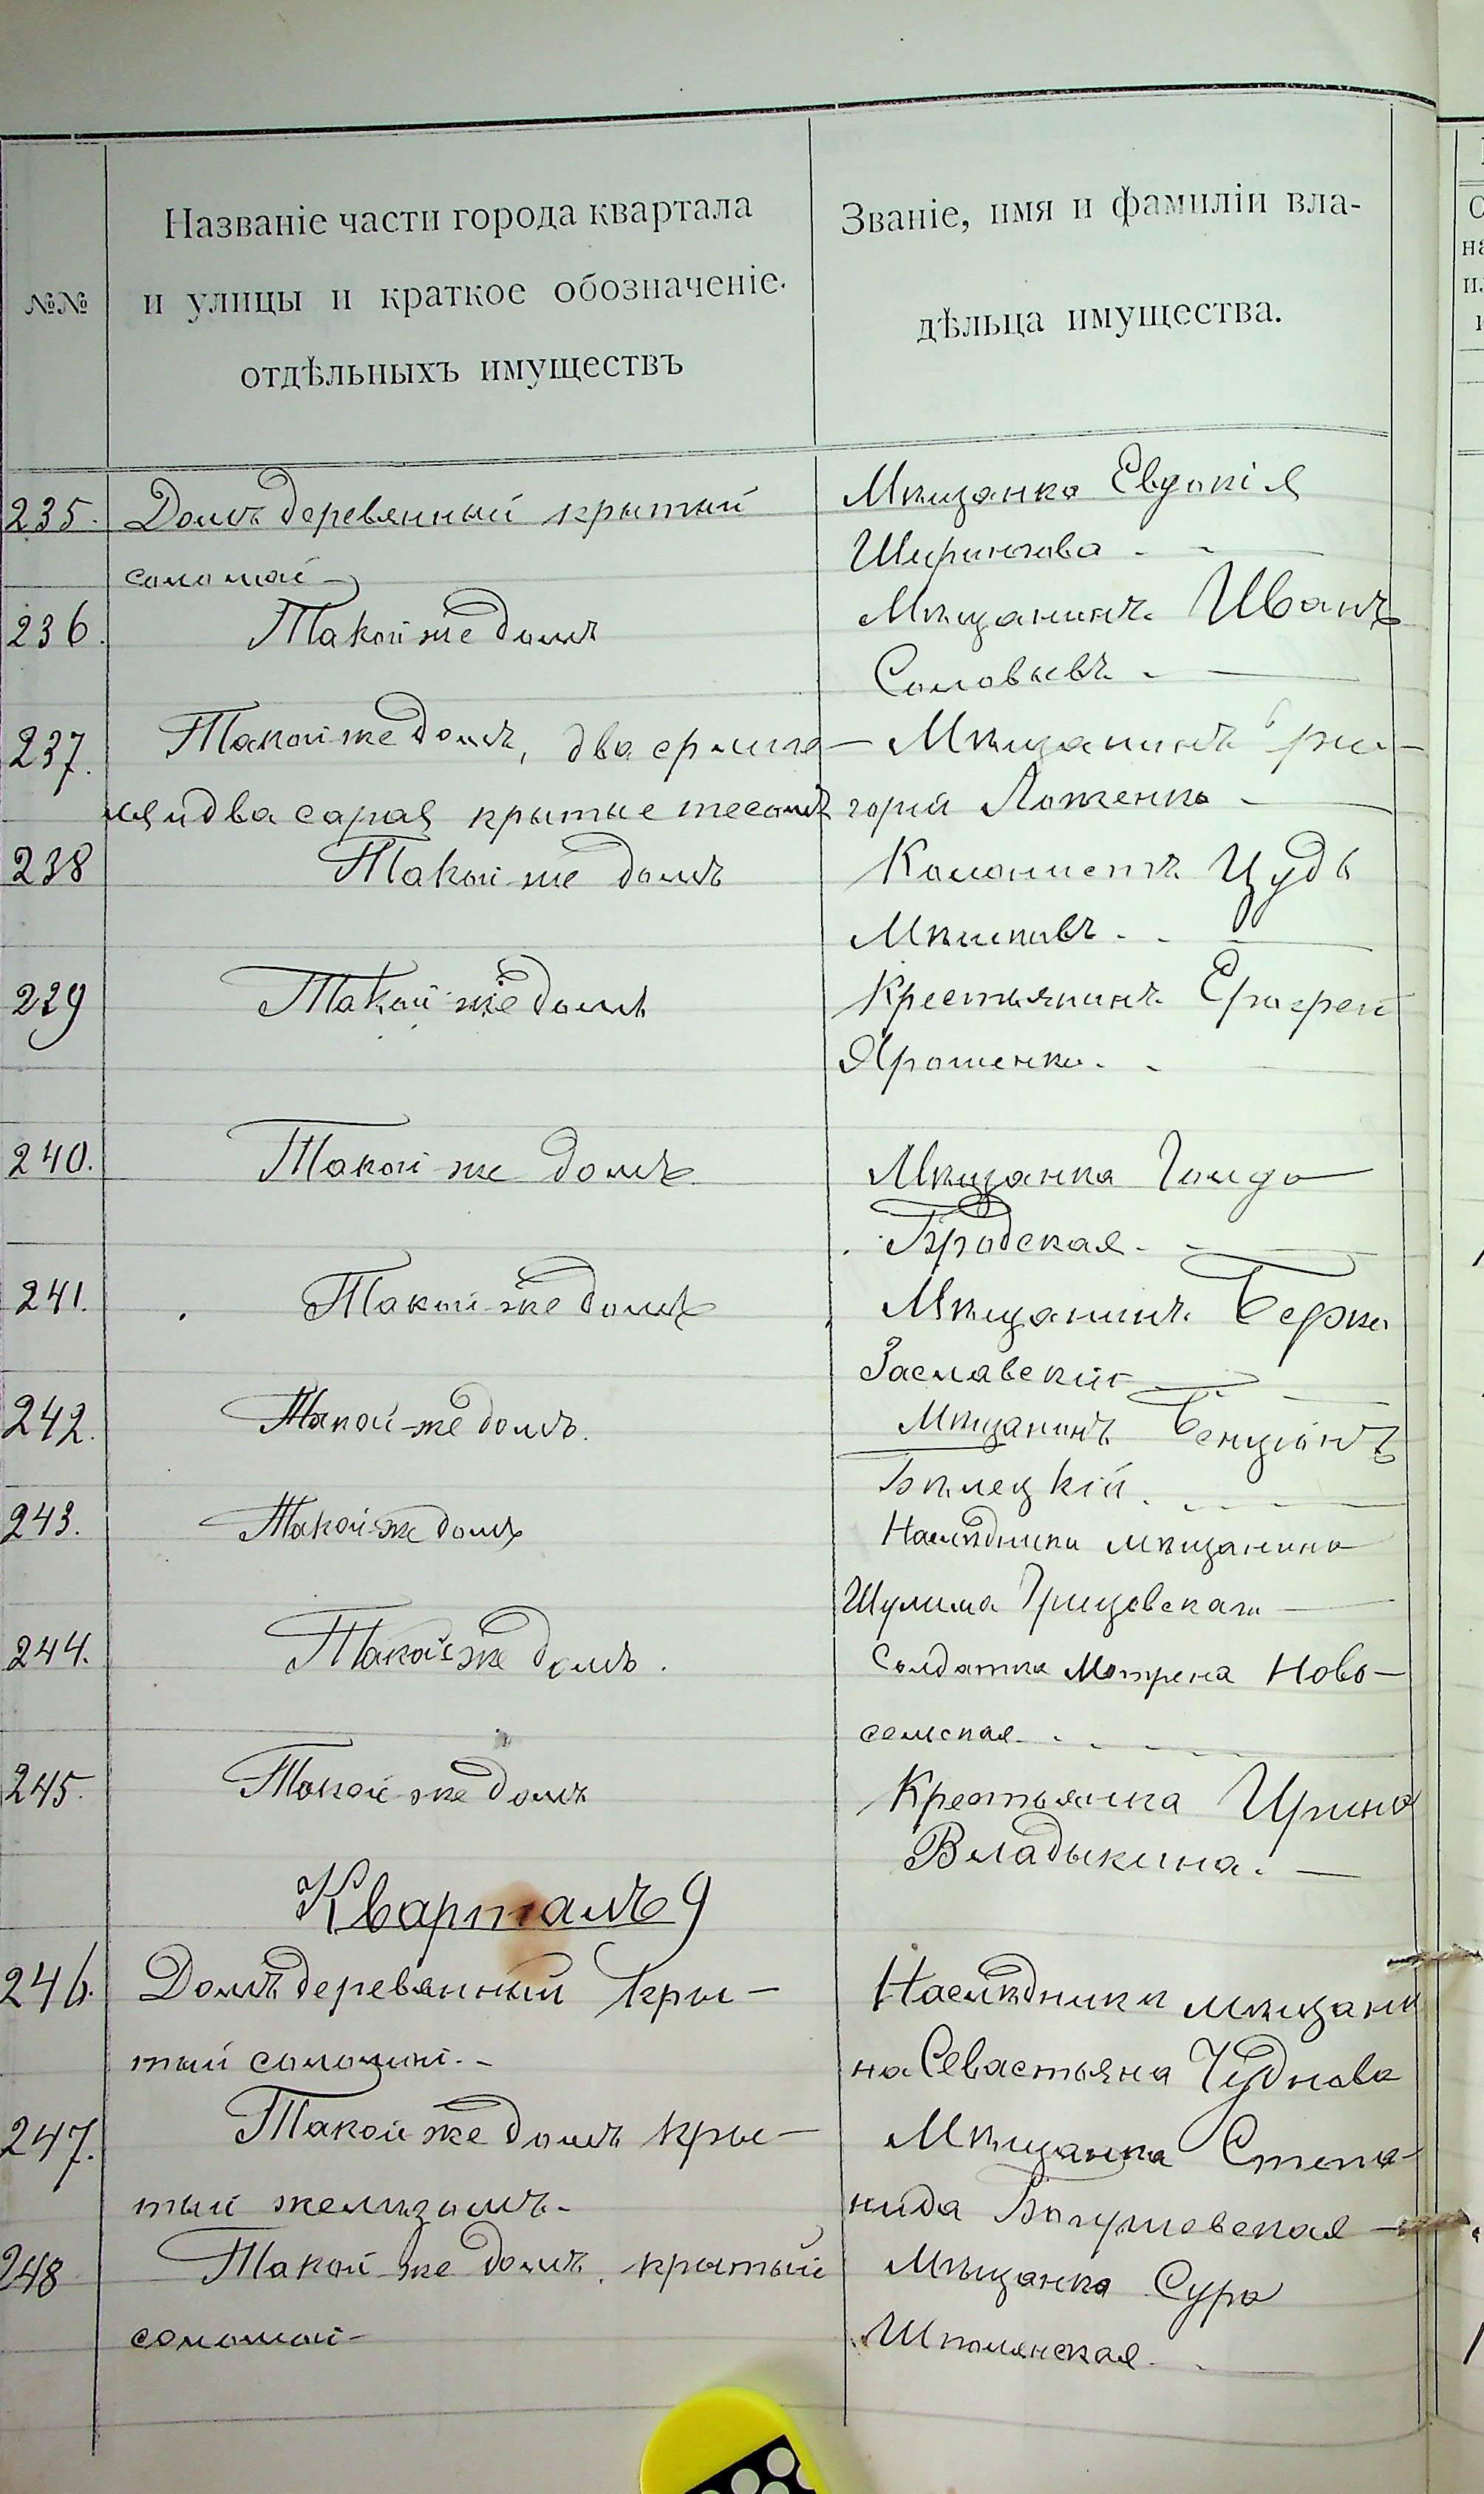 №№
Названіе части города квартала
и улицы и краткое обозначеніе
отдѣльныхъ имуществъ
Званіе, имя и фамиліи вла-
дѣльца имущества.
235. Домъ деревянный крытый Мѣщанка Евдокія
соломой
236. Такой же домъ Мѣщанинъ Иванъ
Соловьевъ
237. Такой же домъ, два Мѣщанинъ Гри-
и два сарая крытые тесомъ горій
238 Такой-же домъ Колонистъ
239 Такой-же домъ Крестьянинъ
Ярошенко.
240. Такой-же домъ Мѣщанка
Бродская.
241. Такой-же домъ Мѣщанинъ Берко
Заславскій
242. Такой-же домъ. Мѣщанинъ Бенціонъ
Бѣлецкій.
243. Такой-же домъ Наслѣдники мѣщанина
Шулима
244. Такой же домъ. Солдатка Мотрена Ново-
сельская
245. Такой же домъ Крестьянка Ирина
Владыкина.
Кварталъ 9
246. Домъ деревянный кры- Наслѣдники мѣщани
тый соломой.- на Севастьяна Чуднова
247. Такой же домъ кры- Мѣщанка Степа-
тый желѣзомъ.- нида Богушевская
248 Такой же домъ, крытый Мѣщанка Сура
соломой- Шполянская.